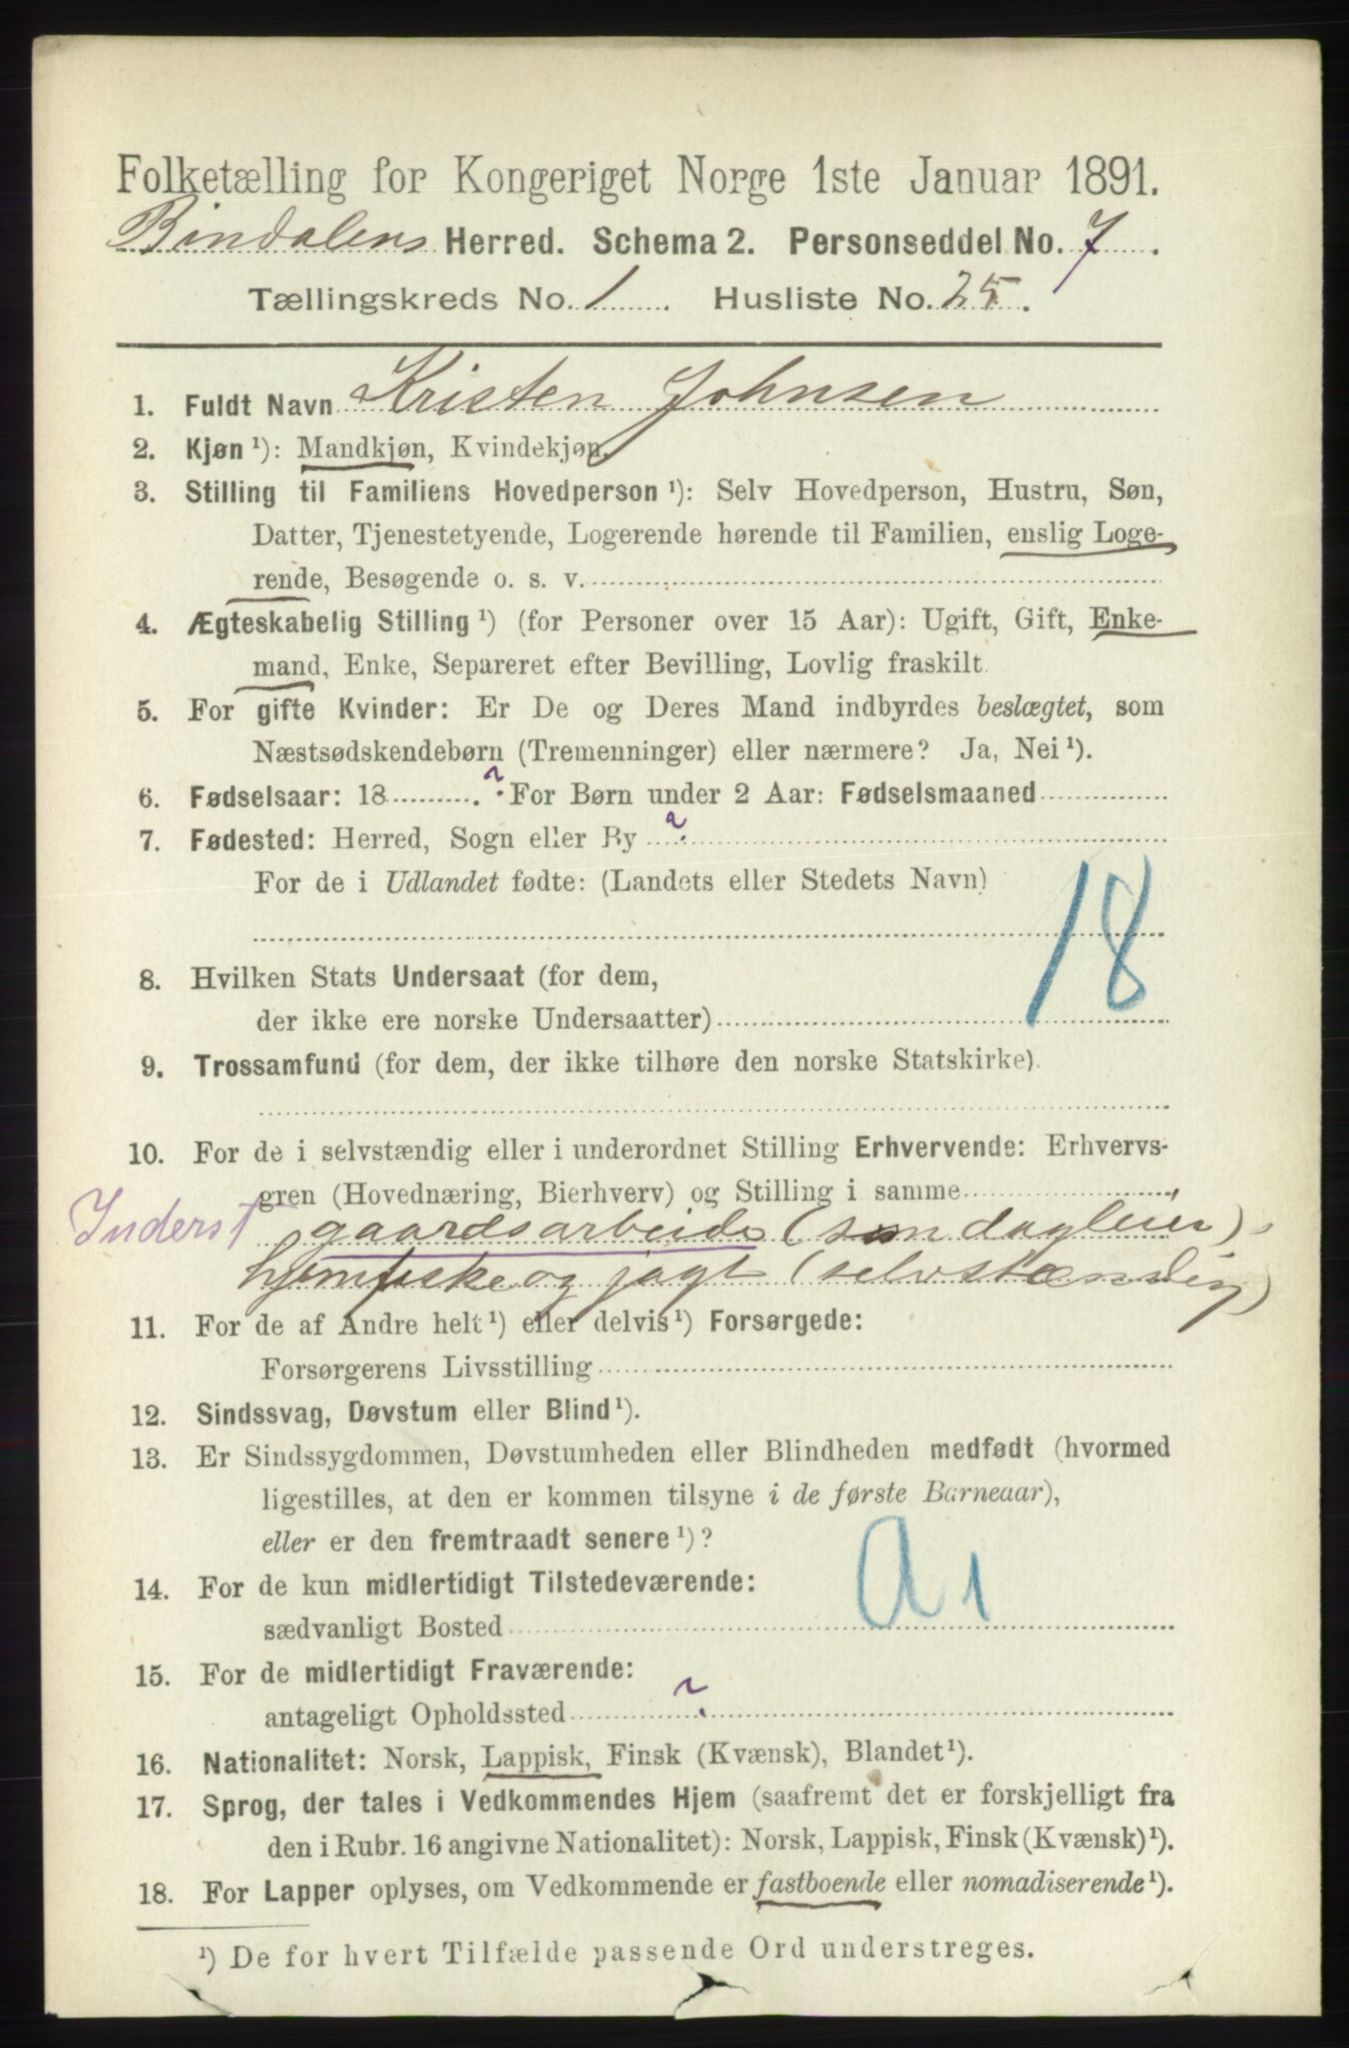 Folketælling for Kongeriget Norge 1ste Januar 1891.
Bindalens Herred. Schema 2. Personseddel No. 7.
Tællingskreds No. 1. Husliste No. 25.
1. Fuldt Navn Kristen Johnsen
2. Kjøn ¹): Mandkjøn, Kvindekjøn.
3. Stilling til Familiens Hovedperson ¹): Selv Hovedperson, Hustru, Søn,
Datter, Tjenestetyende, Logerende hørende til Familien, enslig Loge-
rende, Besøgende o. s. v.
4. Ægteskabelig Stilling ¹) (for Personer over 15 Aar): Ugift, Gift, Enke-
mand, Enke, Separeret efter Bevilling, Lovlig fraskilt.
5. For gifte Kvinder: Er De og Deres Mand indbyrdes beslægtet, som
Næstsødskendebørn (Tremenninger) eller nærmere? Ja, Nei ¹).
6. Fødselsaar: 18 ? For Børn under 2 Aar: Fødselsmaaned
7. Fødested: Herred, Sogn eller By ?
For de i Udlandet fødte: (Landets eller Stedets Navn)
18
8. Hvilken Stats Undersaat (for dem,
der ikke ere norske Undersaatter)
9. Trossamfund (for dem, der ikke tilhøre den norske Statskirke).
10. For de i selvstændig eller i underordnet Stilling Erhvervende: Erhvervs-
gren (Hovednæring, Bierhverv) og Stilling i samme
Inderst gaardsarbeide (som dagleier)
hjemfiske og jagt (selvstændig)
11. For de af Andre helt ¹) eller delvis ¹) Forsørgede:
Forsørgerens Livsstilling
12. Sindssvag, Døvstum eller Blind ¹).
13. Er Sindssygdommen, Døvstumheden eller Blindheden medfødt (hvormed
ligestilles, at den er kommen tilsyne i de første Barneaar),
eller er den fremtraadt senere ¹)?
a 1
14. For de kun midlertidigt Tilstedeværende:
sædvanligt Bosted
15. For de midlertidigt Fraværende:
antageligt Opholdssted ?
16. Nationalitet: Norsk, Lappisk, Finsk (Kvænsk), Blandet ¹).
17. Sprog, der tales i Vedkommendes Hjem (saafremt det er forskjelligt fra
den i Rubr. 16 angivne Nationalitet): Norsk, Lappisk, Finsk (Kvænsk) ¹).
18. For Lapper oplyses, om Vedkommende er fastboende eller nomadiserende ¹).
¹) De for hvert Tilfælde passende Ord understreges.